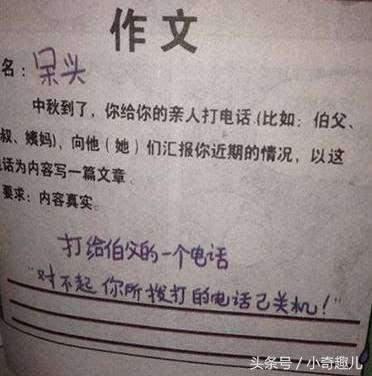 作文
名：呆头
中秋到了，你给你的亲人打电话（比如：伯父、
叔、姨妈），向他（她）们汇报你近期的情况，以这
电话为内容写一篇文章。
要求：内容真实。
打给伯父的一个电话
“对不起 你所拨打的电话已关机！”
头条号／小奇趣儿